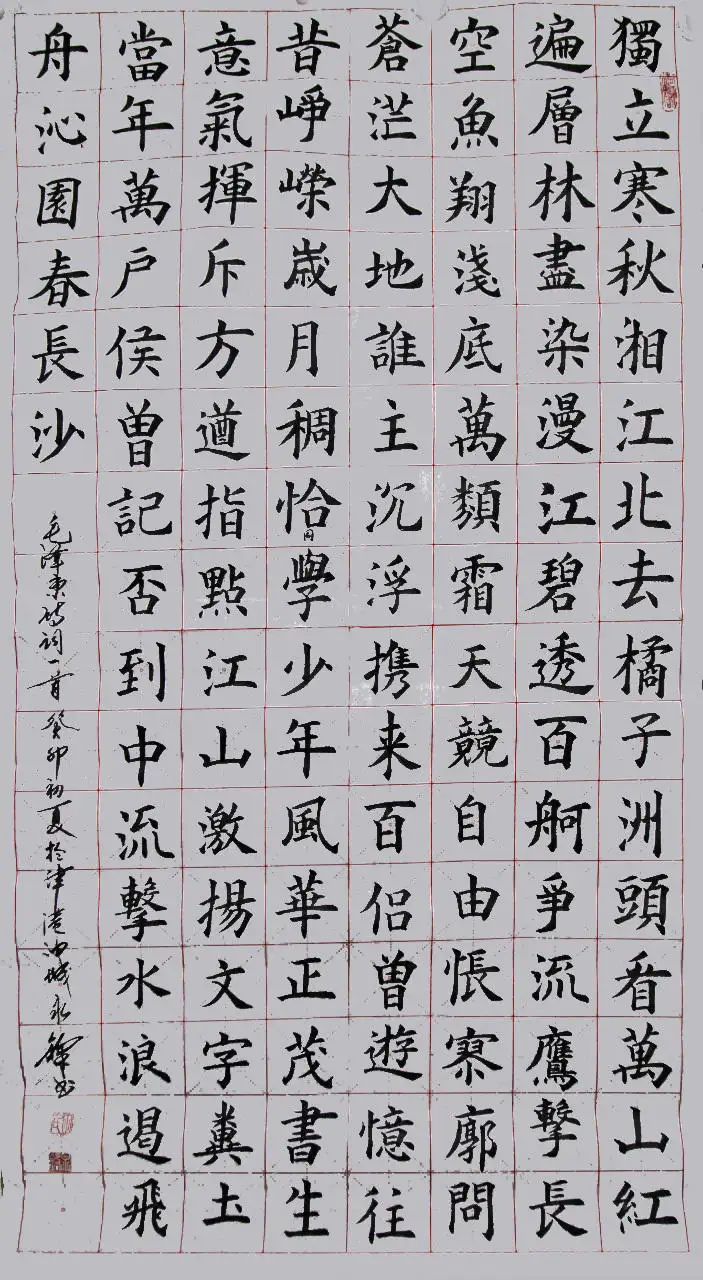 獨立寒秋湘江北去橘子洲頭看萬山紅
遍層林盡染漫江碧透百舸爭流鷹擊長
空魚翔淺底萬類霜天競自由悵寥廓問
蒼茫大地誰主沉浮携来百侣曾遊憶往
昔崢嶸歲月稠恰同學少年風華正茂書生
意氣揮斥方遒指點江山激揚文字糞土
當年萬户侯曾記否到中流擊水浪遏飛
舟沁園春長沙
毛澤東詩词一首癸卯初夏於津港油城永书